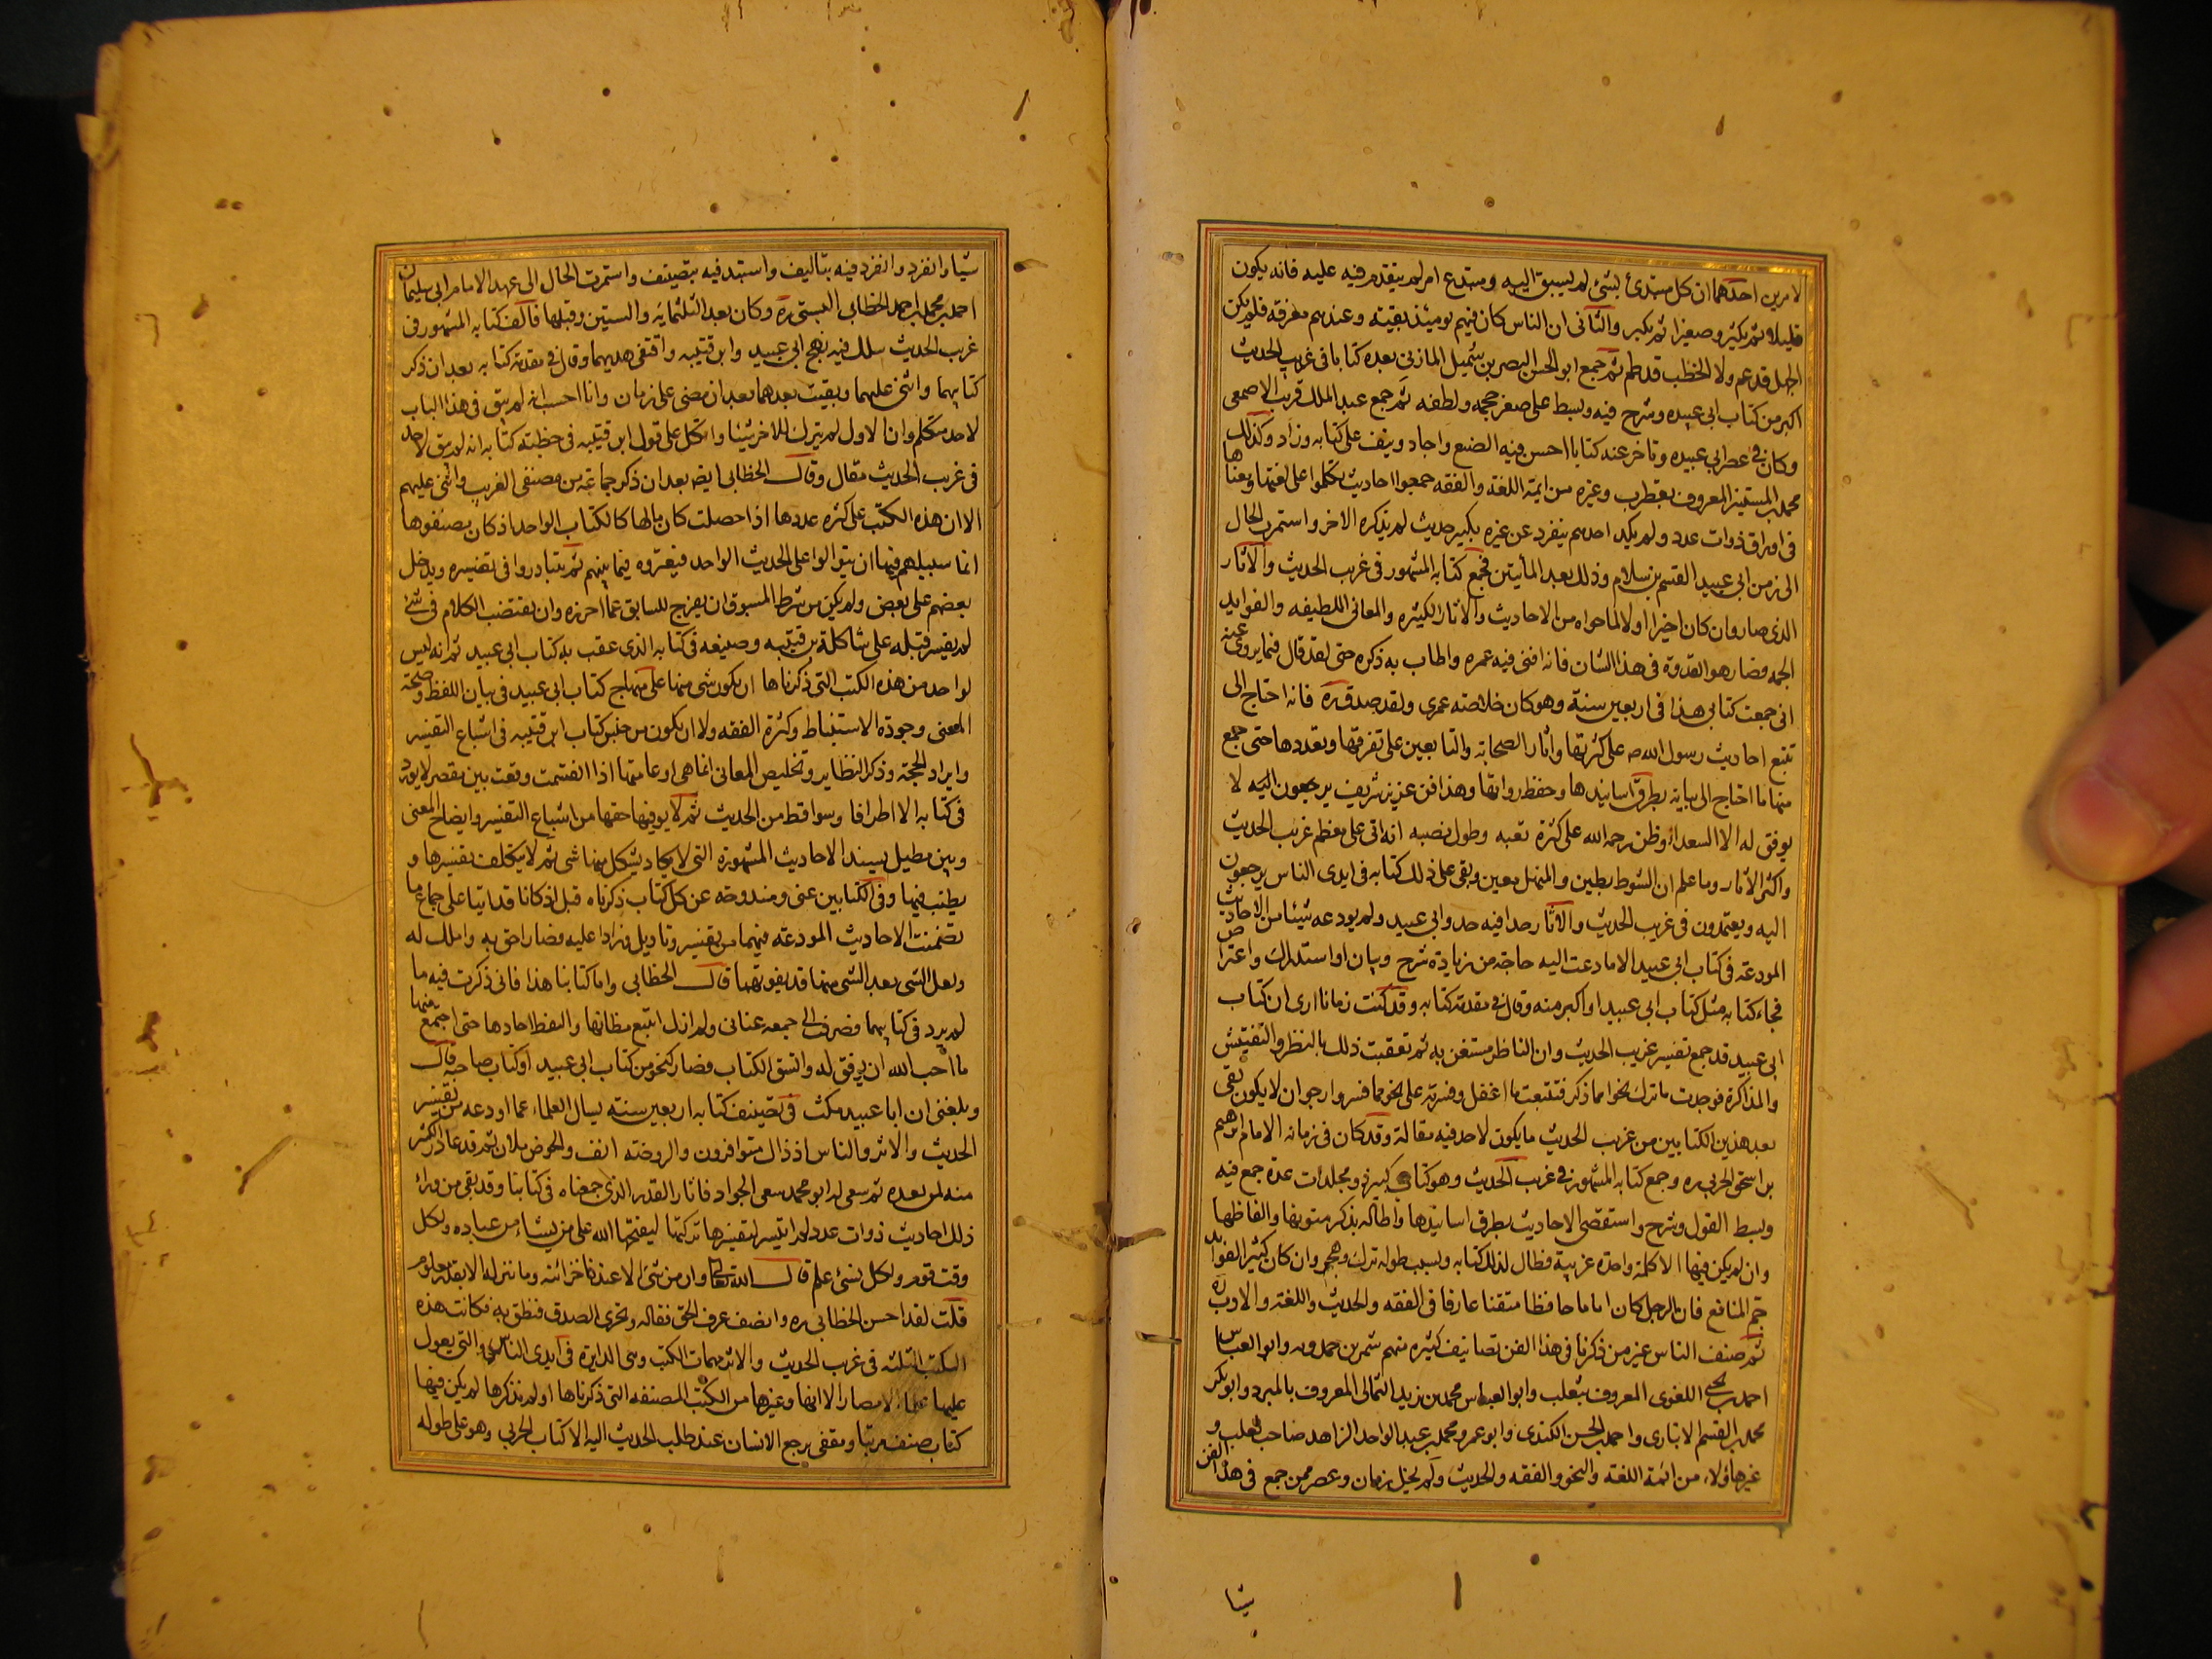 لامرين احدهما ان كل مبتدئ بشئ لم يسبق اليه ومبتدع امر لم يتقدم فيه عليه فانه يكون
قليلا ثم يكثر وصغيرا ثم يكبر والثانى ان الناس كان فيهم يومئذ بقيته وعندهم معرفه فلم يكن
الجهل قد عم ولا الخطب قد طم ثم جمع ابو الحسن النصر بن شميل المازنى بعده كتابا فى غريب الحديث
اكبر من كتاب ابى عبيده وشرح فيه وبسط على صغر حجمه ولطفه ثم جمع عبد الملك قريب الاصمعى
وكان فى عصر ابى عبيده وتاخر عنه كتابا احسن فيه الصنع واجاد ونيف على كتابه وزاد وكذلك
محمد بن المستنير المعروف بقطرب وغيره من ايمة اللغة والفقه جمعوا احاديث تكلموا على لغتها ومعناها
فى اوراق ذوات عدد ولم يكد احدهم ينفرد عن غيره بكبير حديث لم يذكره الاخر واستمرت الحال
الى زمن ابى عبيد القسم بن سلام وذلك بعد المأيتين فجمع كتابه المشهور فى غريب الحديث والآثار
الذى صار وان كان اخيرا اولا لما حواه من الاحاديث والاثار الكثيره والمعانى اللطيفه والفوايد
الجمه فصار هو القدوة فى هذا الشان فانه افنى فيه عمره واطاب به ذكره حتى لقد قال فيما يروى عنه
انى جمعت كتابى هذا فى اربعين سنة وهو كان خلاصته عمرى ولقد صدق ره فانه احتاج الى
تتبع احاديث رسول الله صه على كثرتها واثار الصحابة والتابعين على تفرقها وتعددها حتى جمع
منها ما احتاج الى بيانه بطرق اسانيدها وحفظ رواتها وهذا فن عزيز شريف يرجعون اليه لا
يوفق له الا السعداء وظن رحمه الله على كثرة تعبه وطول نصبه انه اتى على معظم غريب الحديث
واكثر الاثار وما علم ان الشوط بطين والمنهل معين وبقى على ذلك كتابه فى ايدى الناس يرجعون
اليه ويعتمدون فى غريب الحديث والآثار حدا فيه حد وابى عبيد ولم يودعه شيئا من الاحاديث
المودعة فى كتاب ابى عبيد الا ما دعت اليه حاجة من زيادة شرح وبيان او استدراك واعتراض
فجاء كتابه مثل كتاب ابى عبيد او اكبر منه وقال فى مقدمة كتابه وقد كنت زمانا ارى ان كتاب
ابى عبيد قد جمع تفسير غريب الحديث وان الناظر مستغن به ثم تعقبت ذلك بالنظر والتفتيش
والمذاكرة فوجدت ما ترك نحوا مما ذكر فتتبعت ما اغفل وفسرته على نحو مما فسر وارجو ان لا يكون بقى
بعد هذين الكتابين من غريب الحديث ما يكون لاحد فيه مقالة وقد كان فى زمانه الامام ابرهيم
بن اسحق الحربى ره وجمع كتابه المشهور فى غريب الحديث وهو كتاب كبير ذو مجلدات عدة جمع فيه
وبسط القول وشرح واستقصى الاحاديث بطرق اسانيدها واطاله بذكر متونها والفاظها
وان لم يكن فيها الا كلمة واحدة غريبة فطال لذلك كتابه وبسبب طوله ترك وهجر وان كان كثير الفوائد
جم المنافع فان الرجل كان اماما حافظا متقنا عارفا فى الفقه والحديث واللغة والادب ره
ثم صنف الناس غير من ذكرنا فى هذا الفن تصانيف كثيره منهم شمر بن حمدويه وابو العباس
احمد بن يحيى اللغوى المعروف بثعلب وابو العباس محمد بن زيد الثمالى المعروف بالمبرد وابو بكر
محمد بن القسم الانبارى واحمد بن الحسن الكندى وابو عمرو محمد بن عبد الواحد الزاهد صاحب ثعلب و
غير هاؤلاء من ائمة اللغة والنحو والفقه والحديث ولم يخل زمان وعصر ممن جمع فى هذا الفن
شيا
شيا وانفرد وانفرد فيه بتاليف واستبد فيه بتصنيف واستمرت الحال الى عهد الامام ابى سليمان
احمد بن محمد بن احمد الخطابى البستى ره وكان بعد الثلثمايه والستين وقبلها فالف كتابه المشهور فى
غريب الحديث سلك فيه نهج ابى عبيد وابن قتيبه واقتفى هديهما وقال فى مقدمة كتابه بعد ان ذكر
كتابيهما واثنى عليهما وبقيت بعدهما بعد ان مضى على زمان وانا احسب انه لم يبق فى هذا الباب
لاحد متكلم وان الاول لم يترك للاخر شيئا واتكل على قول ابن قتيبه فى خطبته كتابه انه لم يبق لاحد
فى غريب الحديث مقال وقال الخطابى ايضه بعد ان ذكر جماعة من مصنفى الغريب واثنى عليهم
الا ان هذه الكتب على كثره عددها اذا حصلت كان مآلها كالكتاب الواحد اذ كان مصنفوها
انما سبيلهم فيها ان يتوالوا على الحديث الواحد فيعتروه فيما بينهم ثم يتبادروا فى تفسيره ويدخل
بعضهم على بعض ولم يكن من شرط المسبوق ان يفرج للسابق عما احرزه وان يقتضب الكلام فى شئ
لم يفسر قبله على شاكلة بن قتيبه وصنيعه فى كتابه الذى عقب به كتاب ابى عبيد ثم انه ليس
لواحد من هذه الكتب التى ذكرناها ان يكون شى منها على منهاج كتاب ابى عبيد فى بيان اللفظ وصحة
المعنى وجودة الاستنباط وكثرة الفقه ولا ان يكون من جنس كتاب ابن قتيبه فى اشباع التفسير
وايراد الحجة وذكر النظاير وتخليص المعانى انما هى او عامتها اذا انقسمت وقعت بين مقصر لا يورد
فى كتابه الا اطرافا وسواقط من الحديث ثم لا يوفيها حقها من اشباع التفسير وايضاح المعنى
وبين مطيل يسند الاحاديث المشهورة التى لا يكاد يشكل منها شى ثم لا يتكلف بتفسيرها و
يطنب فيها وفى الكتابين غنى ومندوحه عن كل كتاب ذكرناه قبل اذ كانا قد اتيا على جماع ما
تضمنت الاحاديث المودعة فيهما من تفسير وتاويل وزادا عليه فصارا حق به واملك له
ولعل الشى بعد الشى منها قد يفوتهما قال الخطابى واما كتابنا هذا فانى ذكرت فيه ما
لم يرد فى كتابيهما فصرفى الى جمعه عنانى ولم ازل اتتبع مظانها والتقط احادها حتى اجتمع منها
ما احب الله ان يوفق له واتسق الكتاب فصار كنحو من كتاب ابى عبيد او كتاب صاحبه قال
وبلغنى ان ابا عبيد مكث فى تصنيف كتابه اربعين سنة يسال العلماء عما اودعه من تفسير
الحديث والاثر والناس اذ ذاك متوافرون والروضه انف والحوض ملان ثم قد غادر الكثير
منه لمن بعده ثم سعى له ابو محمد سعى الجواد فاثار القدر الذى جمعناه فى كتابنا وقد بقى من وراء
ذلك احاديث ذوات عدد لم اتيسر لتفسيرها تركتها ليفتحها الله على من يشاء من عباده ولكل
وقت قوم ولكل نشئ علم قال الله تعالى وان من شئ الا عندنا خزائنه وما ننزله الا بقدر معلوم
قلت لقد احسن الخطابى ره وانصف عرف الحق فقاله وتحرى الصدق فنطق به فكانت هذه
الكتب الثلثه فى غريب الحديث والاثر امهات الكتب وهى الدايرة فى ايدى الناس والتى يعول
عليها علماء الامصار الا انها وغيرها من الكتب المصنفه التى ذكرناها او لم نذكرها لم يكن فيها
كتاب صنف مرتبا ومقفى يرجع الانسان عند طلب الحديث اليه الا كتاب الحربى وهو على طوله